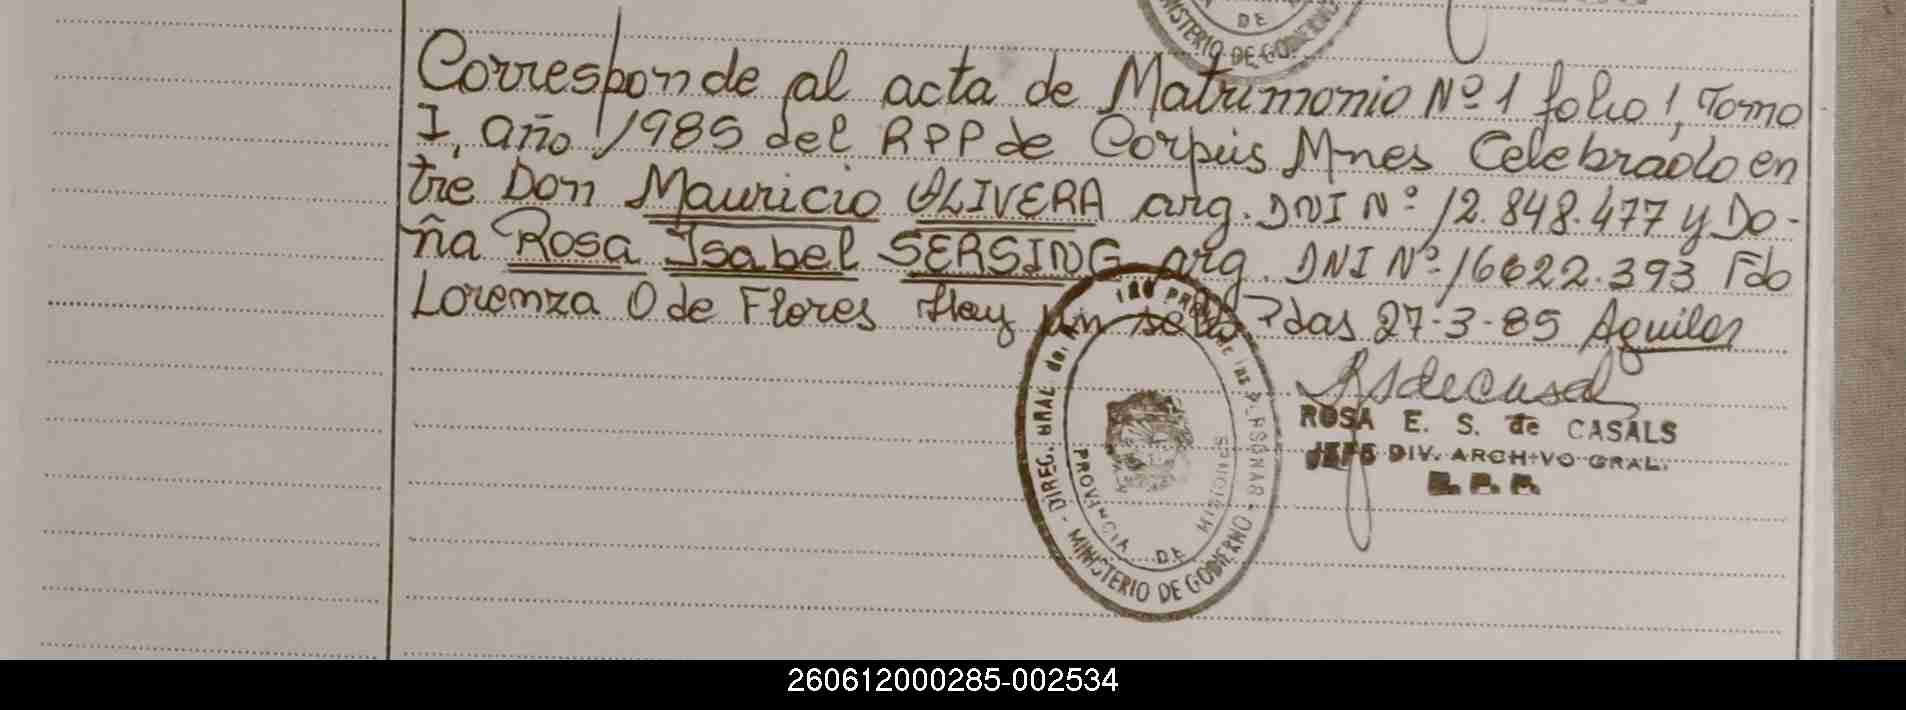 DE
MINISTERIO DE GOBIERNO
Corresponde al acta de Matrimonio Nº 1 folio 1, Tomo
I, año 1985 del RPP de Corpus Mnes Celebrado en
tre Don Mauricio OLIVERA arg. DNI Nº 12.848.477 y Do-
ña Rosa Isabel SERSING arg. DNI Nº 16622.393 Fdo
Lorenza O de Flores Hay un sello Pdas 27-3-85 Aguilar
ROSA E. S. de CASALS
JEFE DIV. ARCHIVO GRAL.
R. P. P.
DIREC. GRAL. del REG. PROV. DE LAS PERSONAS - MINISTERIO DE GOBIERNO
PROVINCIA DE MISIONES
260612000285-002534